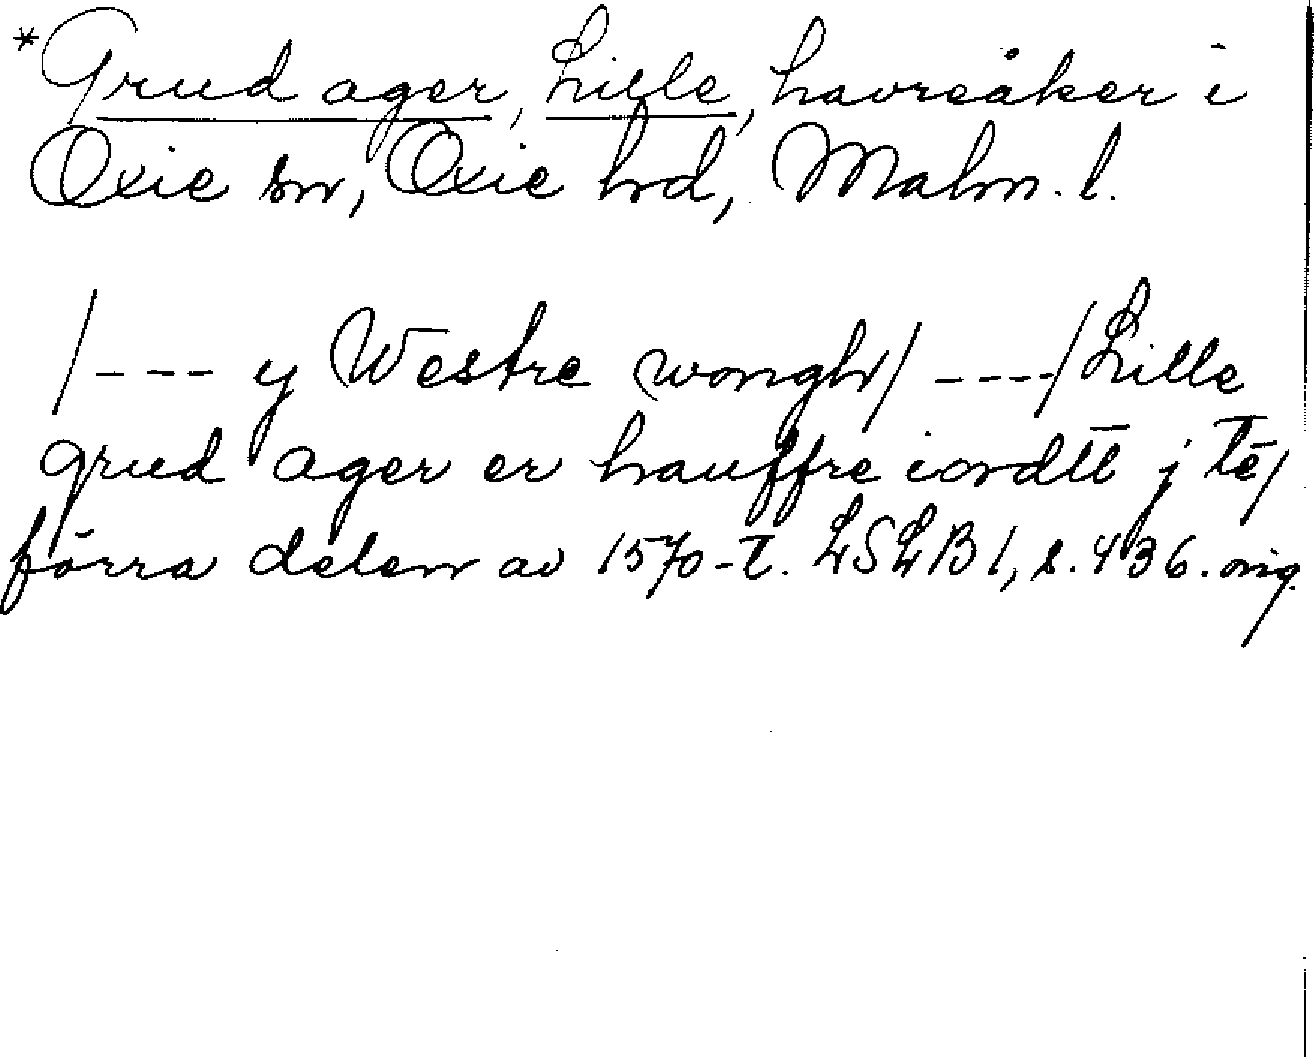 *Grud ager, Lille, havreåker i
Oxie sn, Oxie hd, Malm. l.
/--- y Westre wongh/ ----/Lille
grud ager er hauffre iordtt j tē/
förra delen av 1570-t. LSLB 1, s. 436. orig.